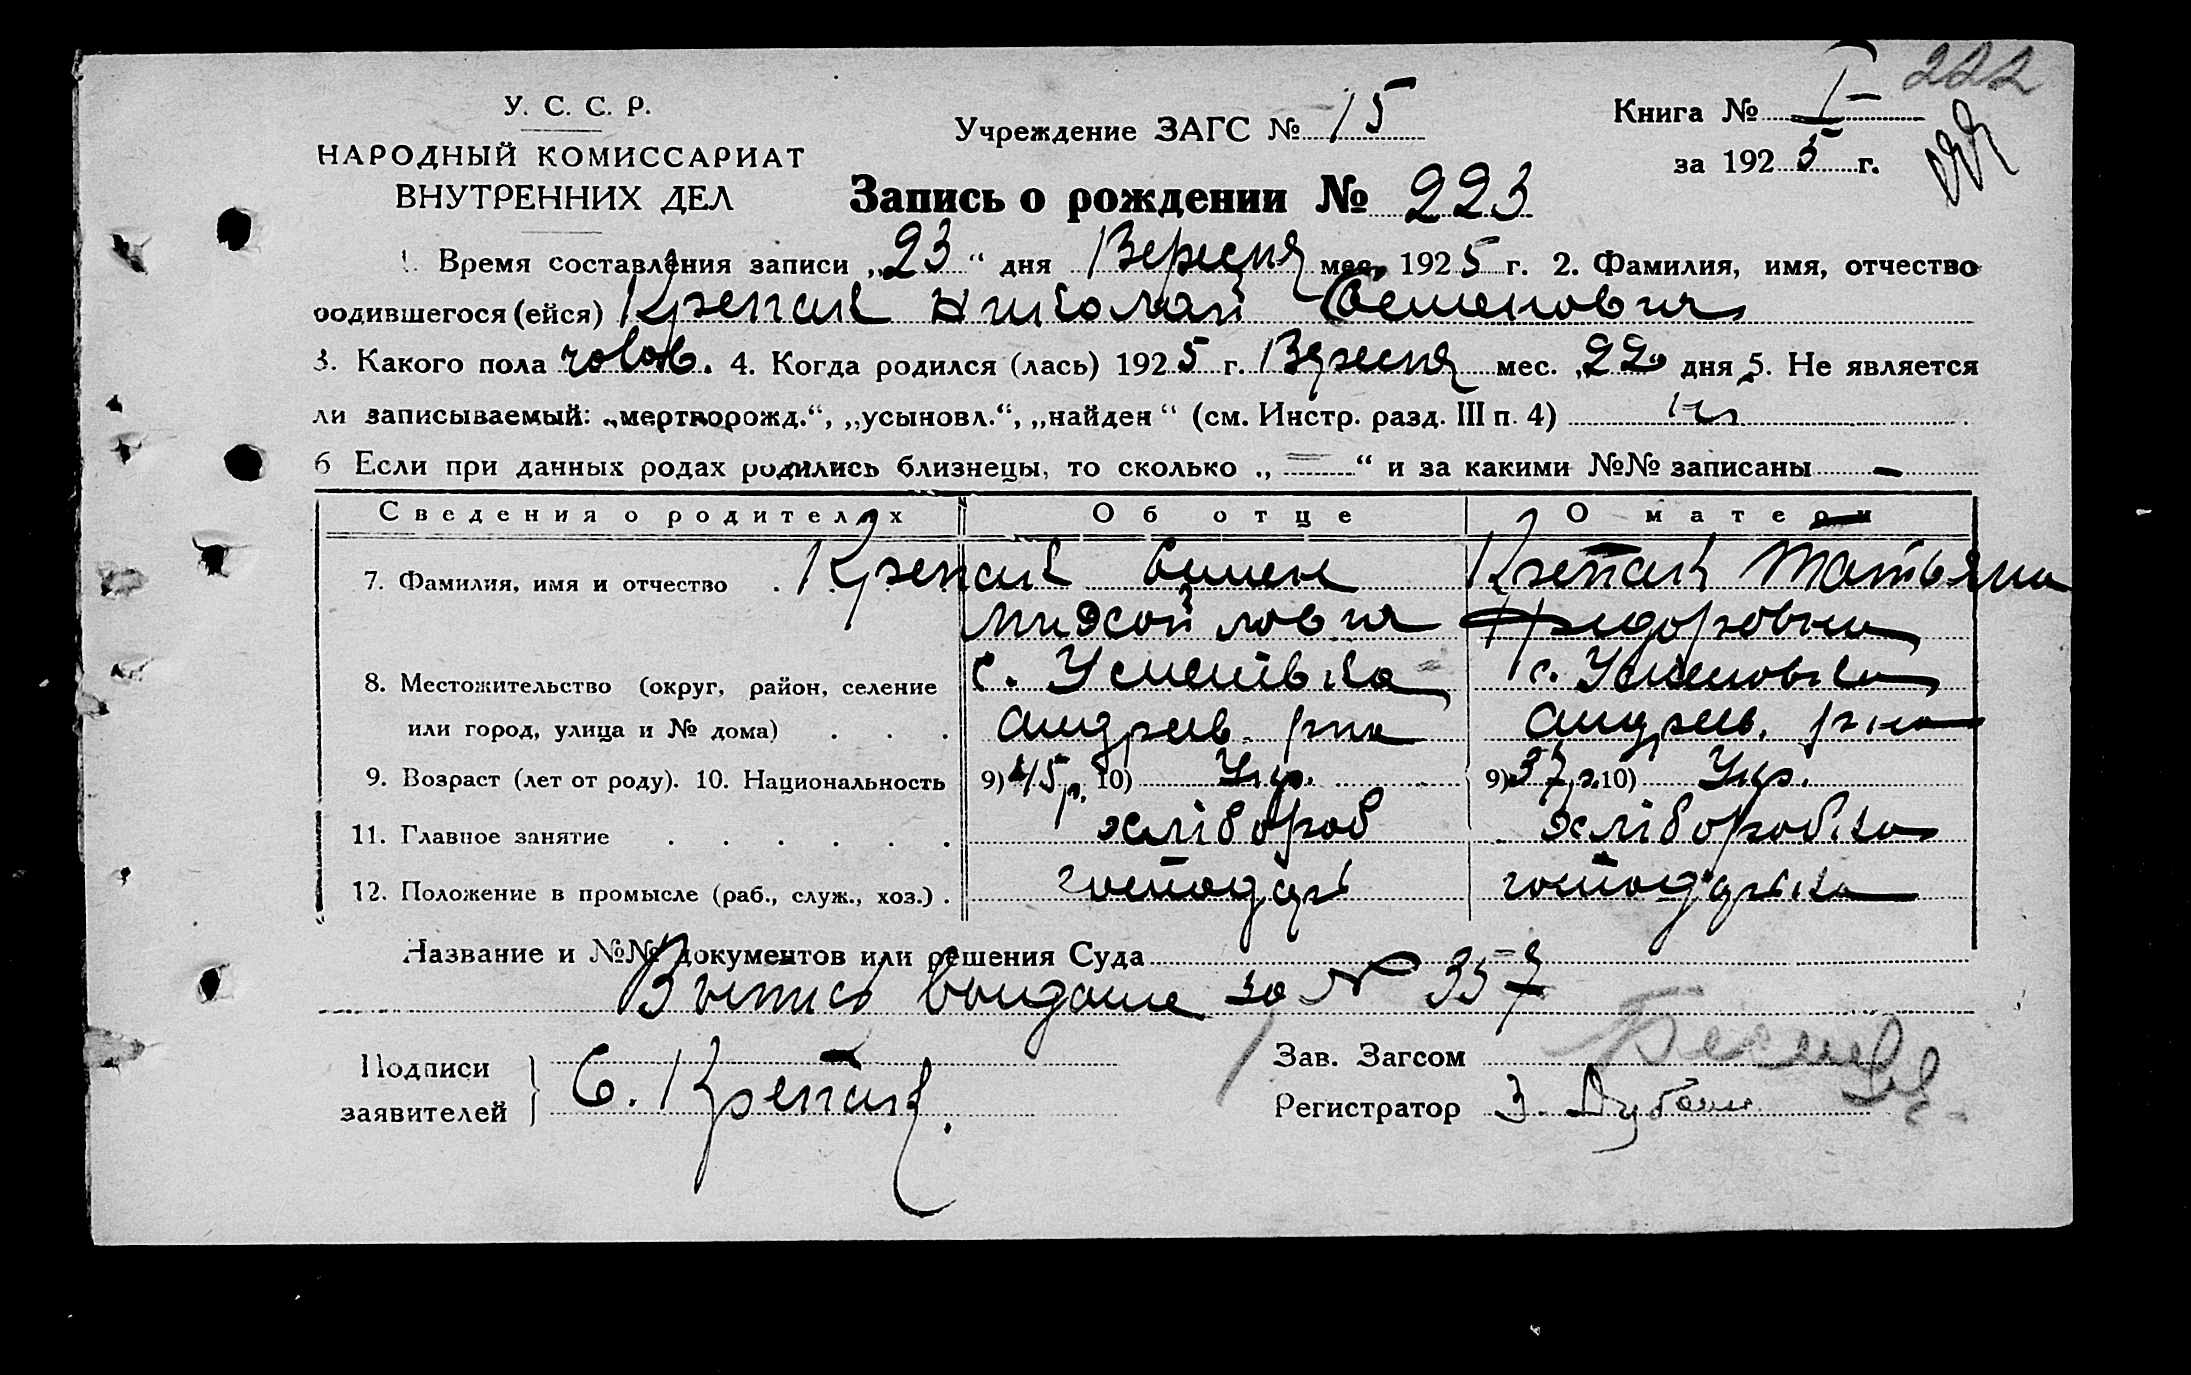 222
У. С. С. Р.
НАРОДНЫЙ КОМИССАРИАТ
ВНУТРЕННИХ ДЕЛ
Учреждение ЗАГС № 15
Книга № I
за 1925 г.
Запись о рождении № 223
1. Время составления записи „23“ дня Вересня мес. 1925 г. 2. Фамилия, имя, отчество
родившегося (ейся) Крепак Николай Семенович
3. Какого пола чолов. 4. Когда родился (лась) 1925 г. Вересня мес. „22“ дня 5. Не является
ли записываемый: „мертворожд.“, „усыновл.“, „найден“ (см. Инстр. разд. III п. 4) Ні
6 Если при данных родах родились близнецы, то сколько „ — “ и за какими №№ записаны —
Сведения о родителях Об отце О матери
7. Фамилия, имя и отчество . Крепак Симен Крепак Татьяна
Михайлович Фидоровна
8. Местожительство (округ, район, селение с. Успенівка с. Успеновка
или город, улица и № дома) . . . Андреев. рна Андреев. рна
9. Возраст (лет от роду). 10. Национальность 9) 45 р. 10) Укр. 9) 37 р. 10) Укр.
11. Главное занятие . . . . . . хлібороб хліборобка
12. Положение в промысле (раб., служ., хоз.) . господарь господарька
Название и №№ документов или решения Суда
Выпись выдана за № 357
Подписи
заявителей
С. Крепак.
Зав. Загсом
Регистратор З.